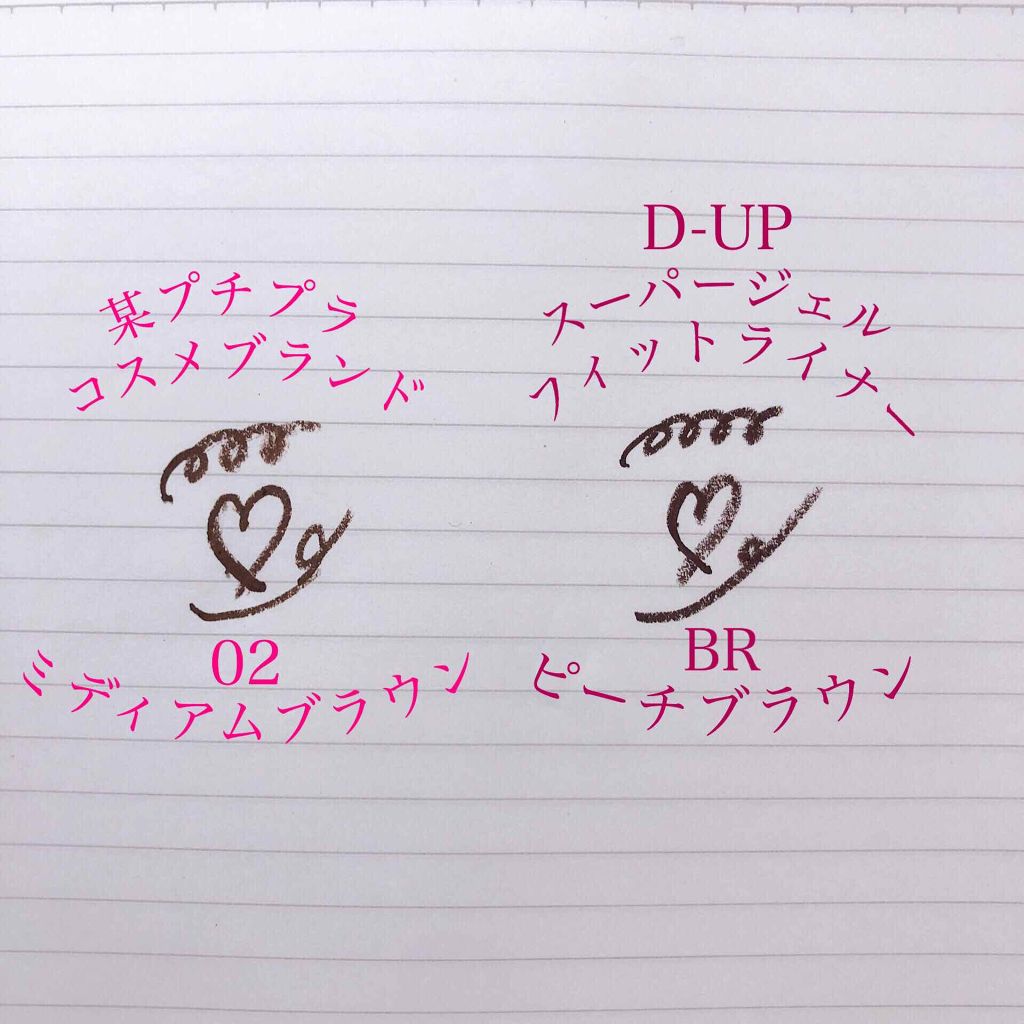 某プチプラ
コスメブランド
02
ミディアムブラウン
D-UP
スーパージェル
フィットライナー
BR
ピーチブラウン